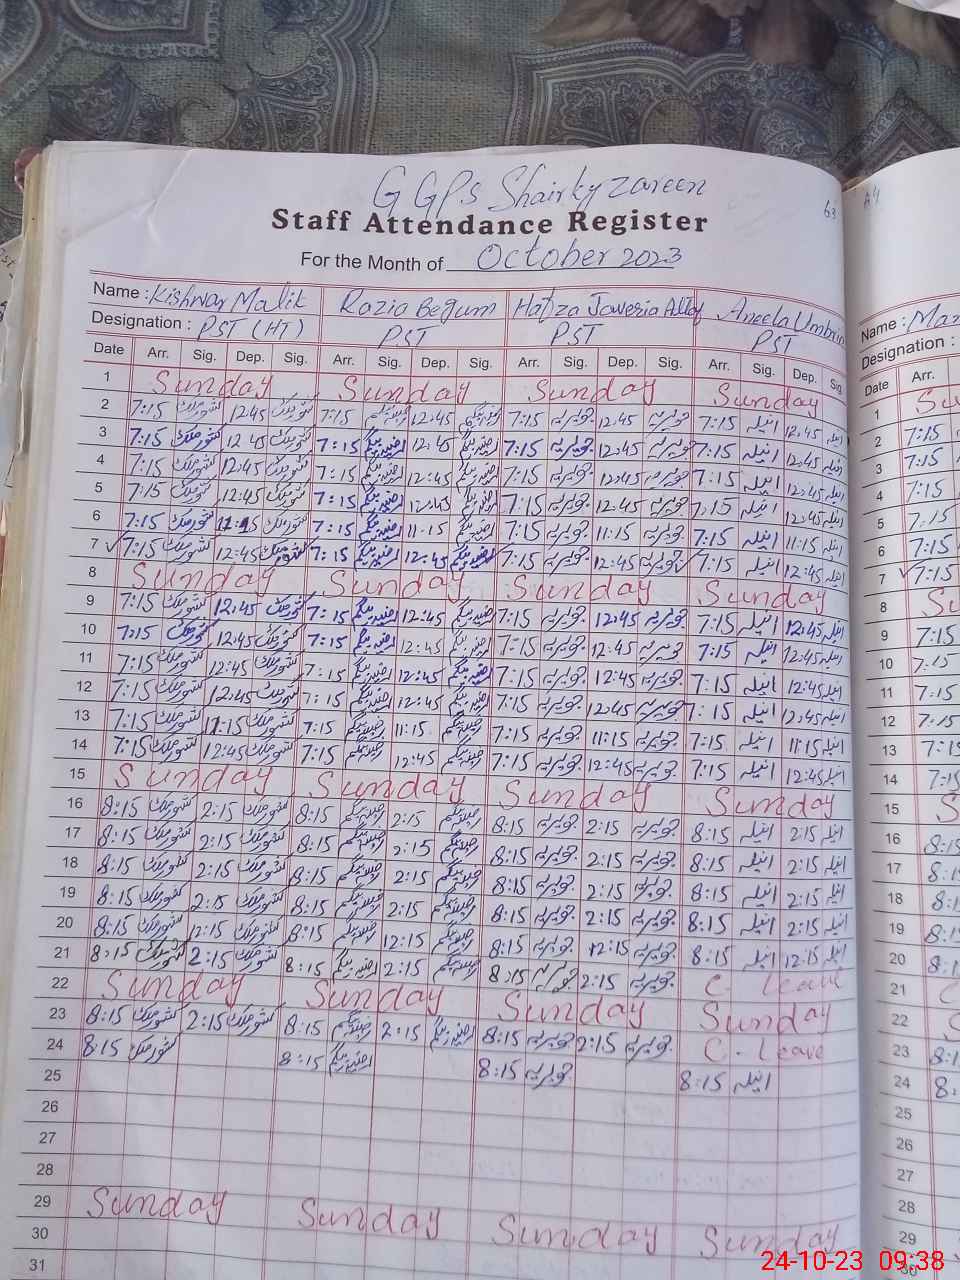 G GPS Shairky Zareen
63
A4
Staff Attendance Register
For the Month of October 2023
Name : Kishwar Malik Razia Begum Hafiza Javeria Aneela Umbrin
Name :
Designation : PST (HT) PST PST PST
Designation :
Date Arr. Sig. Dep. Sig. Arr. Sig. Dep. Sig. Arr. Sig. Dep. Sig. Arr. Sig. Dep. Sig.
Date Arr.
1 Sunday Sunday Sunday Sunday
2 7:15 کشور ملک 12:45 کشور ملک 7:15 رضیہ بیگم 12:45 رضیہ بیگم 7:15 جویریہ 12:45 جویریہ 7:15 انیلہ 12:45 انیلہ
3 7:15 کشور ملک 12:45 کشور ملک 7:15 رضیہ بیگم 12:45 رضیہ بیگم 7:15 جویریہ 12:45 جویریہ 7:15 انیلہ 12:45 انیلہ
4 7:15 کشور ملک 12:45 کشور ملک 7:15 رضیہ بیگم 12:45 رضیہ بیگم 7:15 جویریہ 12:45 جویریہ 7:15 انیلہ 12:45 انیلہ
5 7:15 کشور ملک 12:45 کشور ملک 7:15 رضیہ بیگم 12:45 رضیہ بیگم 7:15 جویریہ 12:45 جویریہ 7:15 انیلہ 12:45 انیلہ
6 7:15 کشور ملک 11:15 کشور ملک 7:15 رضیہ بیگم 11:15 رضیہ بیگم 7:15 جویریہ 11:15 جویریہ 7:15 انیلہ 11:15 انیلہ
7 7:15 کشور ملک 12:45 کشور ملک 7:15 رضیہ بیگم 12:45 رضیہ بیگم 7:15 جویریہ 12:45 جویریہ 7:15 انیلہ 12:45 انیلہ
8 Sunday Sunday Sunday Sunday
9 7:15 کشور ملک 12:45 کشور ملک 7:15 رضیہ بیگم 12:45 رضیہ بیگم 7:15 جویریہ 12:45 جویریہ 7:15 انیلہ 12:45 انیلہ
10 7:15 کشور ملک 12:45 کشور ملک 7:15 رضیہ بیگم 12:45 رضیہ بیگم 7:15 جویریہ 12:45 جویریہ 7:15 انیلہ 12:45 انیلہ
11 7:15 کشور ملک 12:45 کشور ملک 7:15 رضیہ بیگم 12:45 رضیہ بیگم 7:15 جویریہ 12:45 جویریہ 7:15 انیلہ 12:45 انیلہ
12 7:15 کشور ملک 12:45 کشور ملک 7:15 رضیہ بیگم 12:45 رضیہ بیگم 7:15 جویریہ 12:45 جویریہ 7:15 انیلہ 12:45 انیلہ
13 7:15 کشور ملک 11:15 کشور ملک 7:15 رضیہ بیگم 11:15 رضیہ بیگم 7:15 جویریہ 11:15 جویریہ 7:15 انیلہ 11:15 انیلہ
14 7:15 کشور ملک 12:45 کشور ملک 7:15 رضیہ بیگم 12:45 رضیہ بیگم 7:15 جویریہ 12:45 جویریہ 7:15 انیلہ 12:45 انیلہ
15 Sunday Sunday Sunday Sunday
16 8:15 کشور ملک 2:15 کشور ملک 8:15 رضیہ بیگم 2:15 رضیہ بیگم 8:15 جویریہ 2:15 جویریہ 8:15 انیلہ 2:15 انیلہ
17 8:15 کشور ملک 2:15 کشور ملک 8:15 رضیہ بیگم 2:15 رضیہ بیگم 8:15 جویریہ 2:15 جویریہ 8:15 انیلہ 2:15 انیلہ
18 8:15 کشور ملک 2:15 کشور ملک 8:15 رضیہ بیگم 2:15 رضیہ بیگم 8:15 جویریہ 2:15 جویریہ 8:15 انیلہ 2:15 انیلہ
19 8:15 کشور ملک 2:15 کشور ملک 8:15 رضیہ بیگم 2:15 رضیہ بیگم 8:15 جویریہ 2:15 جویریہ 8:15 انیلہ 2:15 انیلہ
20 8:15 کشور ملک 12:15 کشور ملک 8:15 رضیہ بیگم 12:15 رضیہ بیگم 8:15 جویریہ 12:15 جویریہ 8:15 انیلہ 12:15 انیلہ
21 8:15 کشور ملک 2:15 کشور ملک 8:15 رضیہ بیگم 2:15 رضیہ بیگم 8:15 جویریہ 2:15 جویریہ C- leave
22 Sunday Sunday Sunday Sunday
23 8:15 کشور ملک 2:15 کشور ملک 8:15 رضیہ بیگم 2:15 رضیہ بیگم 8:15 جویریہ 2:15 جویریہ C- Leave
24 8:15 کشور ملک 8:15 رضیہ بیگم 8:15 جویریہ 8:15 انیلہ
25
26
27
28
29 Sunday Sunday Sunday Sunday
30
31
24-10-23 09:38